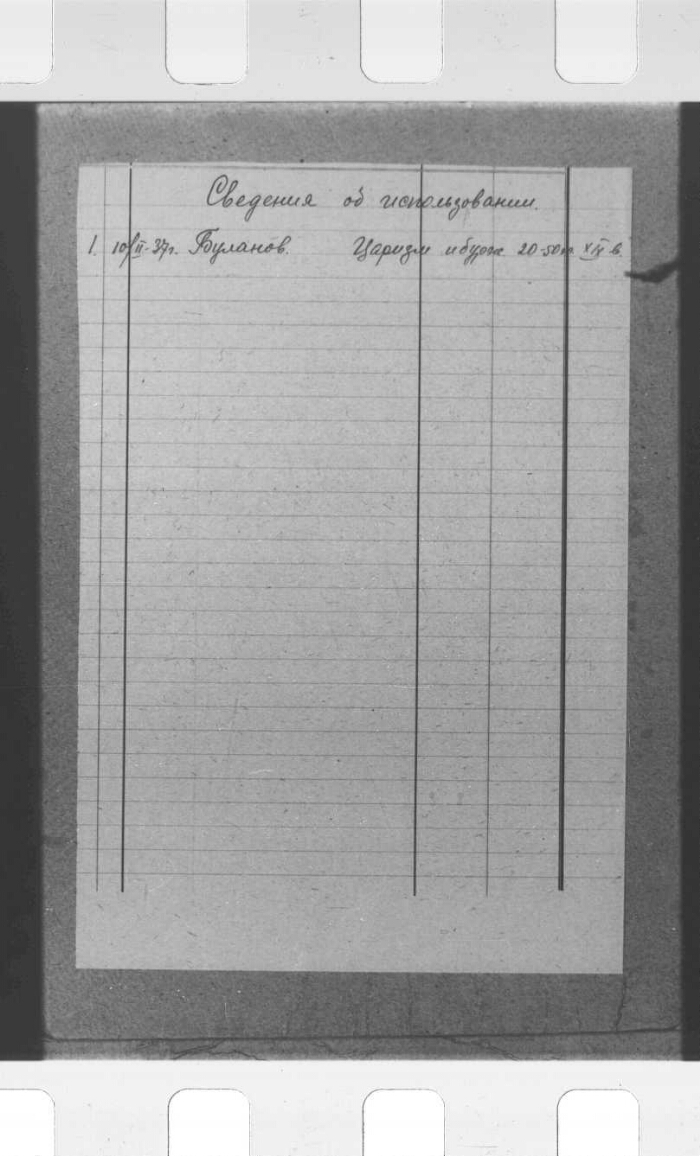 Сведения об использовании.
1. 10/II-37г. Буланов. Царизм и бурж 20-50гг XIX в.